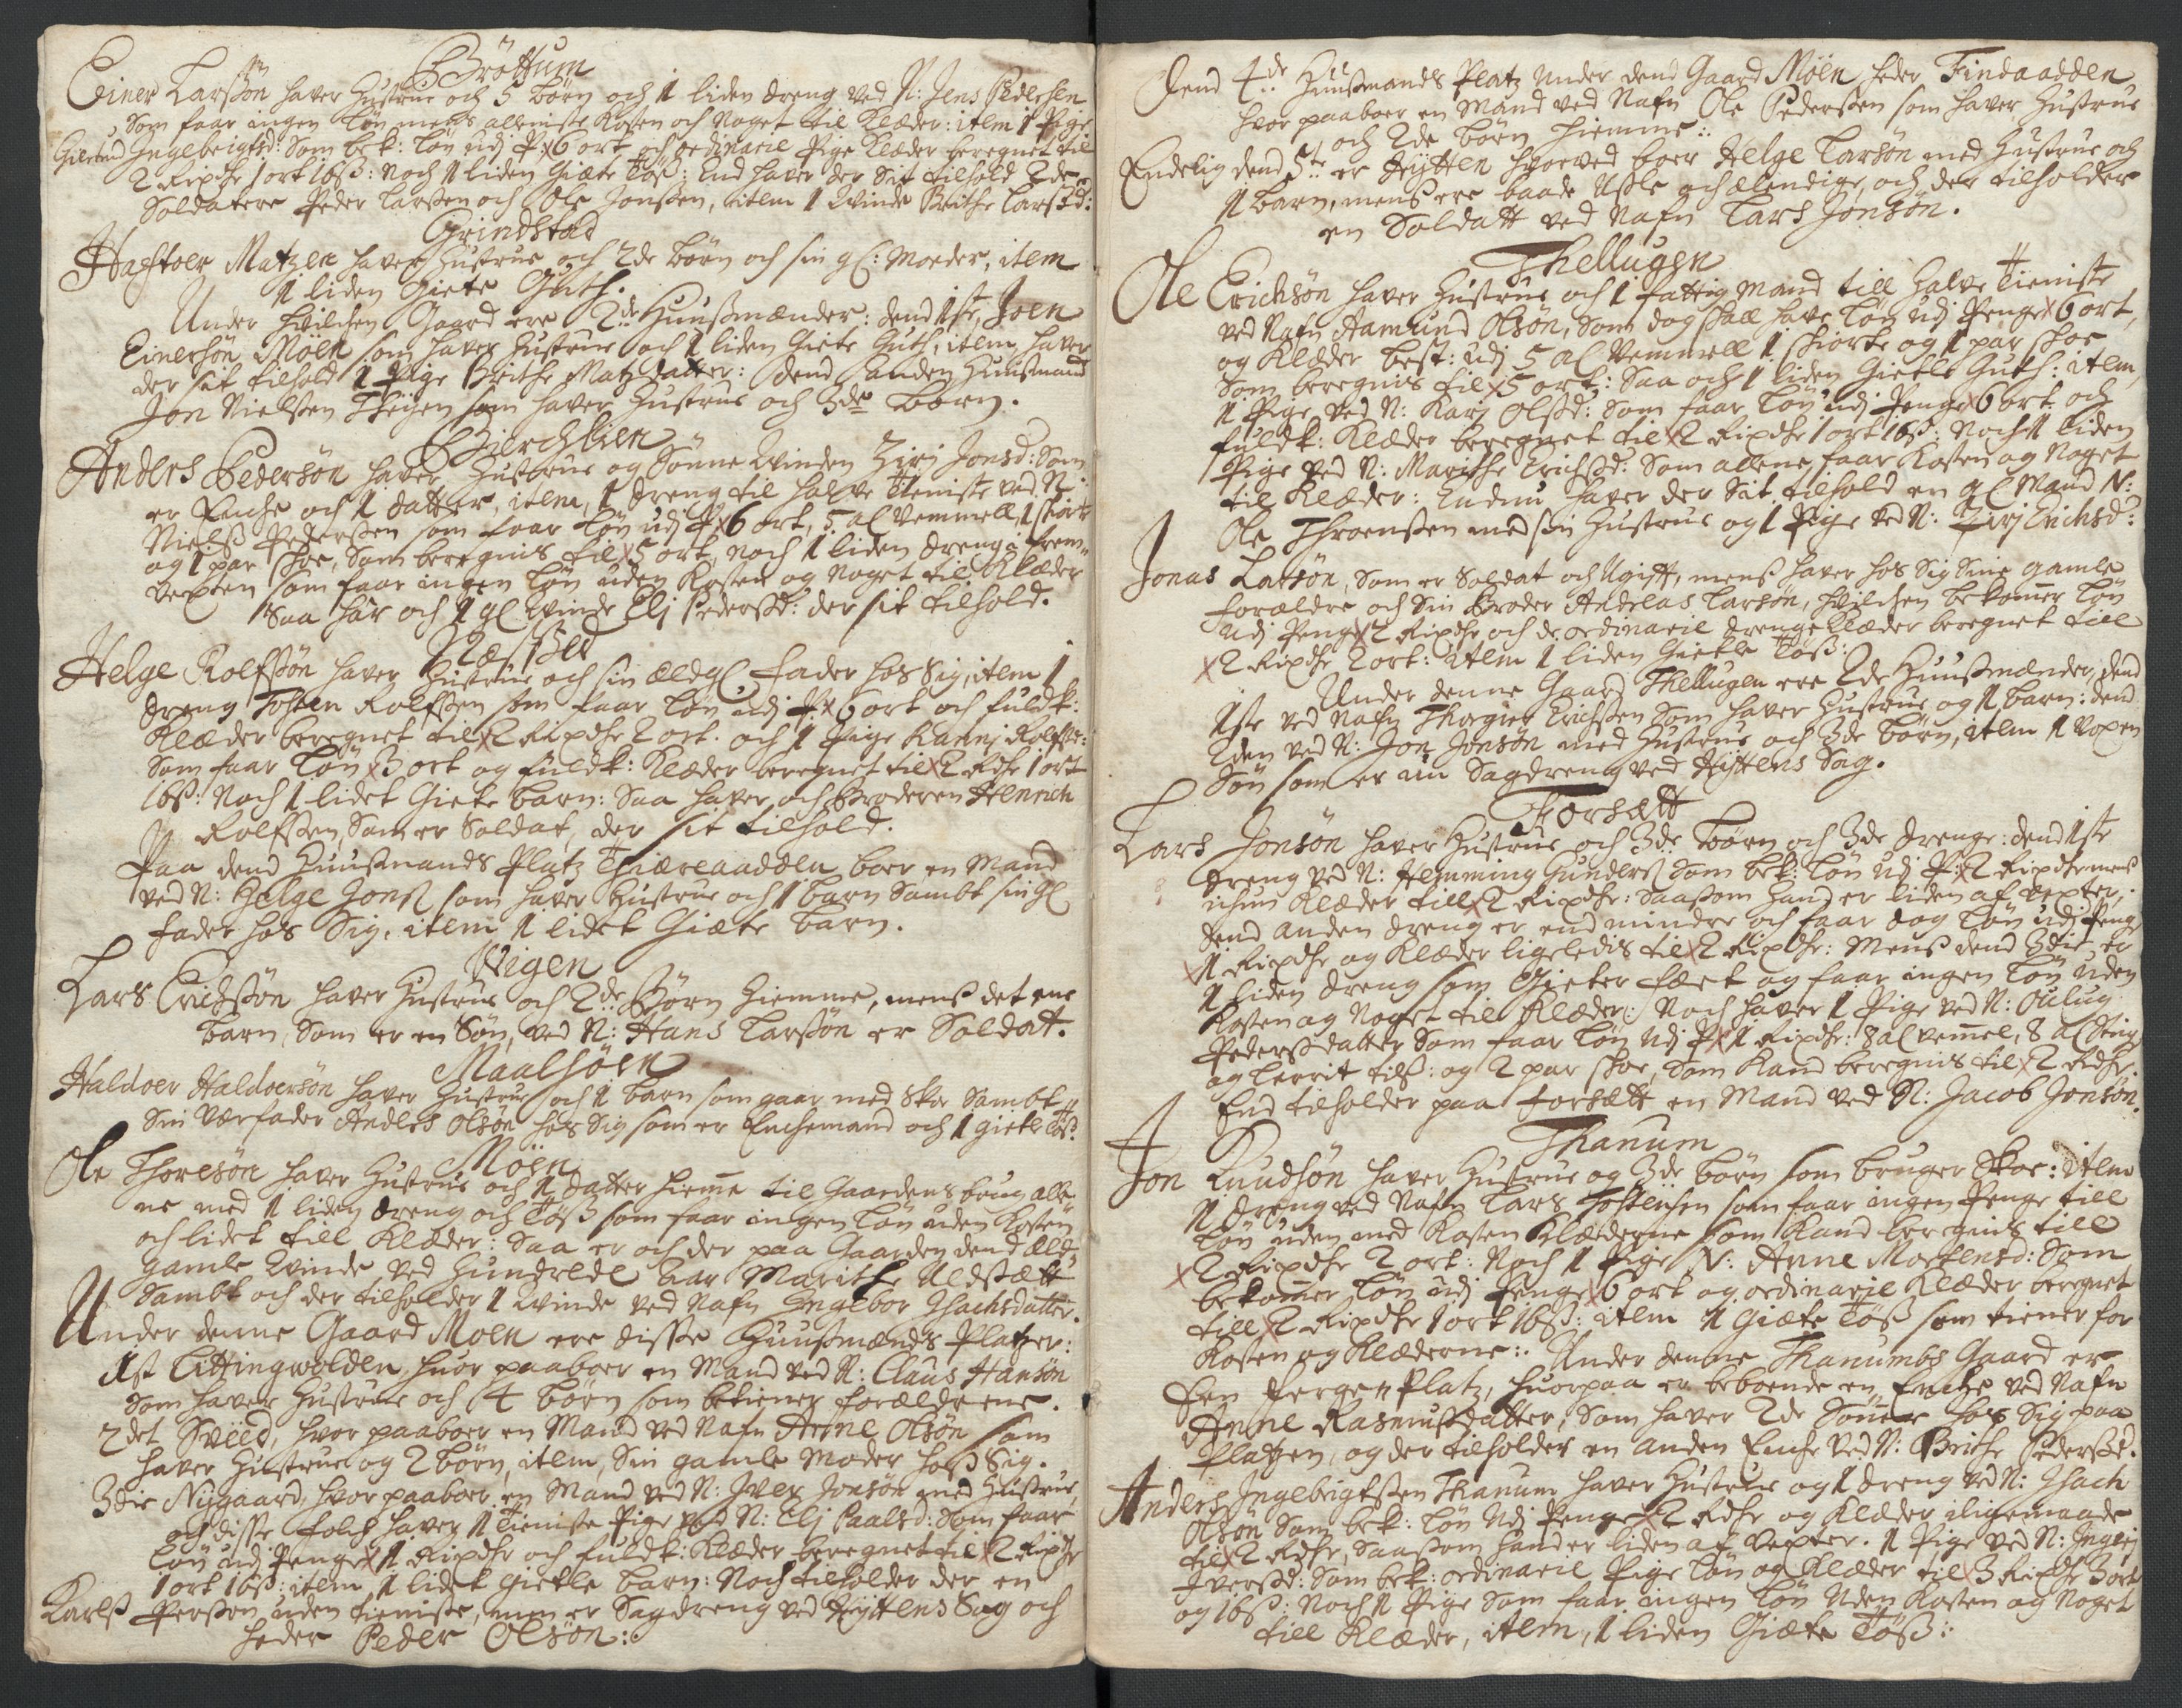 Bröttum
Einer Larßön haver Hustrue och 5 børn och 1 liden dreng ved N: Jens Pedersen
som faar ingen Løn mens alleniste Kosten och Noget til Klæder: item 1 Pige
Ingebrigtsd: som bek: Løn udj P 6 ort och ordinarie Pige Klæder beregnet til
2 Rixdlr 1 ort 16ß: Noch 1 liden Giete Töß: End haver der Sit tilhold 2de
Soldatere Peder Larßen och Ole Jonßen, item 1 Qvinde Brithe Larsd:
Grindstad
Haftoer Matzen haver Hustrue och 2de Børn och sin gl: Moeder, item
1 liden Giete Guth.
Under hvilchen Gaard ere 2de Huußmænder: dend 1ste, Joen
Einersön Möen som haver Hustrue och 1 liden Giete Guth, item haver
der sit tilhold 1 Pige Brithe Matzdatter: dend anden Huußmand
Jon Nielßen som haver Hustrue och 3de Børn.
Bierchlien
Anders Pedersön haver Hustrue og Sönne Qvinden Zirj Jonsd: Som
er Enche och 1 datter, item, 1 dreng til halve tieniste ved N:
Nielß Pederßen som faar Løn udj P 6 ort, 5 al Vemmell, 1 skiorte
og 1 par skoe, Som beregnis til 5 ort, noch 1 liden dreng i frem-
vexten som faar ingen Løn uden Kosten og Noget til Klæder
Saa har och 1 gl Qvinde Elj Pederßd: der sit tilhold.
Næsset
Helge Rolfßön haver Hustrue och sin ældgl Fader hos Sig, item 1
dreng Tosten Rolfßen som faar Løn udj P 6 ort och fuldk:
Klæder beregnet til 2 Rixdlr 2 ort. och 1 Pige Karrj Rolfsd:
Som faar Løn 3 ort og fuldk: Klæder beregnet til 2 Rdlr 1 ort
16ß: Noch 1 lidet Giete Barn: Saa haver och Broderen Henrich
Rolfßen, Som er Soldat, der sit tilhold.
Paa dend Huußmands Platz Thiæreaadden boer en Mand
ved N: Helge Jonß som haver Hustrue och 1 barn Sambt sin gl
Fader hos Sig, item 1 lidet Giete Barn.
Wigen
Lars Erichßön haver Hustrue och 2de Børn Hiemme, menß det ene
barn, Som er en Søn, ved N: Hans Larßön er Soldat.
Maalsöen
Haldoer Haldoersön haver Hustrue och 1 barn som gaar med Skoe Sambt
Sin Værfader Anders Olsön hos Sig som er Enchemand och 1 giete Töß.
Möen
Ole Thoresön haver Hustrue och 1 datter hieme til Gaardens brug alle-
ne med 1 liden dreng och Töß som faar ingen Løn uden Kosten
och lidet till Klæder: Saa er och der paa Gaarden dend æld-
gamle Qvinde ved Hundrede Aar Marithe Aldsætt
Sambt och der tilholder 1 Qvinde ved Nafn Ingebor Isachsdatter.
Under denne Gaard Moen ere disse Huußmænds Platzer:
1st Littingwolden, huor paaboer en Mand ved N: Claus Hansön
som haver Hustrue och 4 børn som betiener forældrene.
2det Sveed, hvor paaboer en Mand ved Nafn Arne Olsön som
haver Hustrue og 2 børn, item, Sin gamle Moder hoß Sig.
3die Nygaard, hvor paaboer en Mand ved N: Iver Jonsön med Hustrue,
och disse Folch haver 1 tieniste Pige ved N: Elj Paalsd: Som faar
Løn udj Penge 1 Rixdlr och fuldk: Klæder beregnet til 2 Rixdlr
1 ort 16ß: item 1 lidet giete barn: Noch tilholder der en
Karlß Perßon uden tieniste, men er Sagdreng ved Hyttens Sag och
heder Peder Olsön:
Dend 4de Huußmands Platz Under dend Gaard Möen heder Findaadden
hvor paaboer en Mand ved Nafn Ole Pederßen som haver Hustrue
och 2de børn hiemme:
Endelig dend 5te er Hytten hvorved boer Helge Larsön med Hustrue och
1 barn, menß ere baade Usle och elendige, och der tilholder
en Soldatt ved Nafn Lars Jonsön.
Thellugen
Ole Erichsön haver Hustrue och 1 fattig Mand till halve tieniste
ved Nafn Aamund Olsön, som dog skal have Løn udj Penge 6 ort,
og Klæder best: udj 5 al Vemmell 1 skiorte og 1 par skoe
Som beregnis til 5 ort: Saa och 1 liden Giete Guth: item,
1 Pige ved N: Karj Olßd: Som faar Løn udj Penge 6 ort och
fuldk: Klæder beregnet til 2 Rixdlr 1 ort 16ß: Noch 1 liden
Pige ved N: Marithe Erichßd: Som allene faar Kosten og Noget
til Klæder: Endnu haver der Sit tilhold en gl Mand N:
Ole Throenßen med sin Hustrue og 1 Pige ved N: Zirj Erichsd:
Jonas Larsön, Som er Soldat och Ugift, menß haver hos Sig Sine gamle
forældre och Sin Broder Andreas Larsön, hvilchen bekomer Løn
udj Penge 2 Rixdlr och de ordinarie drenge Klæder beregnet till
2 Rixdlr 2 ort: item 1 liden Giete Töß:
Under denne Gaard Thellugen ere 2de Huußmænder, dend
1ste ved Nafn Thorgier Erichßen Som haver Hustrue og 1 barn: dend
2den ved N: Jon Jonsön med Hustrue och 3de børn, item 1 voxen
Søn som er nu Sagdreng ved Hyttens Sag.
Forsætt
Lars Jonsön haver Hustrue och 3de børn och 3de drenge: dend 1ste
dreng ved N: Hemming Gunderß Som bek: Løn udj P: 2 Rixdlr menß
Klæder till 2 Rixdlr: Saaßom Hand er liden af Vexter,
dend anden dreng er end mindre och faar dog Løn udj Penge
1 Rixdlr og Klæder ligeledis til 2 Rixdlr: Menß dend 3die er
1 liden dreng som Gieter fæet og faar ingen Løn uden
Kosten og Noget til Klæder: Noch haver 1 Pige ved N: Oulug
Pederßdatter Som faar Løn udj P 1 Rixdlr: 8 al vemel, 8 al Strie
og Lerrit tilß: og 2 par skoe, Som Kand beregnis til 2 Rdlr.
End tilholder paa Forsætt en Mand ved N: Jacob Jonsön.
Thanum
Jon Knudsön haver Hustrue og 3de børn som bruger Skoe: item
1 dreng ved Nafn Lars Tostensen som faar ingen Penge till
Løn uden med Kosten Klæderne som Kand beregnis till
2 Rixdlr 2 ort: Noch 1 Pige N: Anne Mortensd: Som
bekomer Løn udj Penge 6 ort og ordinarie Klæder beregnet
till 2 Rixdlr 1 ort 16ß: item 1 Giete Töß som tiener for
Kosten og Klæderne: Under denne Thanumbs Gaard er
Een Platz, huorpaa er beboende en Enche ved Nafn
Anne Rasmußdatter, Som haver 2de Sønner hos Sig paa
Platzen, og der tilholder en anden Enche ved N: Brithe Pederßd.
Anders Ingebrigtßen Thanum haver Hustrue og 1 dreng ved N: Isach
Olsön Som bek: Løn udj Penge 2 Rdlr og Klæder iligemaade
til 2 Rdlr, Saasom Hand er liden af Vexter. 1 Pige ved N: Ingrj
Iverßd: Som bek: ordinarie Pige Løn og Klæder til 3 Rixdlr 3 ort
og 16ß: Noch 1 Pige som faar ingen Løn uden Kosten og Noget
till Klæder, item, 1 liden Giete Töß: